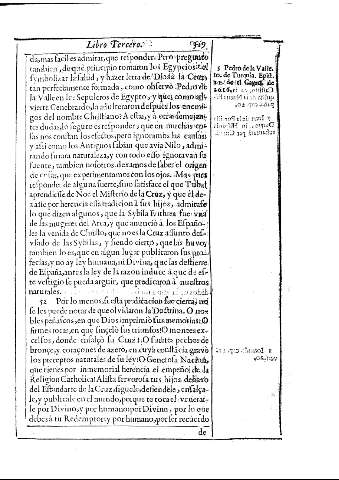 Libro Tercero. 319
da, mas facil es admirar, que responder. Pero pregunto
tambien, de què principio tomaron los Egypcios el
symbolizar la salud, y hazer letra de Dios à la Cruz,
tan perfectamente formada, como observò Pedro de
la Valle en los Sepulcros de Egypto, y que, como ad-
vierte Cenebrardo, la añadieron despues los enemi-
gos del nombre Christiano? A esta, y à otras semejan-
tes dudas, lo seguro es responder, que en muchas co-
sas nos constan los efectos, pero ignoramos las causas
y assi como los Antiguos sabian que avia Nilo, admi-
rando su rara naturaleza, y con todo esso ignoravan su
fuente, tambien nosotros dexamos de saber el origen
de cosas, que experimentamos con los ojos. Mas pues
responder de alguna suerte, si no satisface el que Tubal
aprendiesse de Noè el Misterio de la Cruz, y que èl de-
xasse por herencia esta tradicion à sus hijos, admitase
lo que dizen algunos, que la Sybila Erithrea fue una
de las mugeres del Arca, y que anunciò à los Españo-
les la venida de Christo, que no es la Cruz assunto des-
viado de las Sybilas, y siendo cierto, que las huvo,
tambien lo es, que en algun lugar publicaron sus pro-
fecias, y no ay ley humana, ni Divina, que las destierre
de España, antes la ley de la razon induce à que de es-
te vestigio se pueda arguir, que predicaron à nuestros
naturales.
52 Por lo menos, si esta predicacion fue cierta, no
se les puede notar de que olvidaron la Doctrina. O no-
bles peñascos, en que Dios imprimiò sus memorias! O
firmes rocas, en que sinçelò sus triunfos! O montes ex-
celsos, donde ensalçò la Cruz! O fuertes pechos de
bronçe, y coraçones de azero, en cuya constancia gravò
los preceptos naturales de su ley! O Generosa Nacion,
que tienes por inmemorial herencia el empeño de la
Religion Catholica! Alista fervorosa tus hijos debaxo
del Estandarte de la Cruz, siguelo, defiendele, ensalça-
le, y publicale en el mundo, porque te toca el venerar-
le por Divino, y por humano; por Divino, por lo que
debes à tu Redemptor; y por humano, por ser recuerdo
de
5 Pedro de la Valle,
to. de Turquia. Epist.